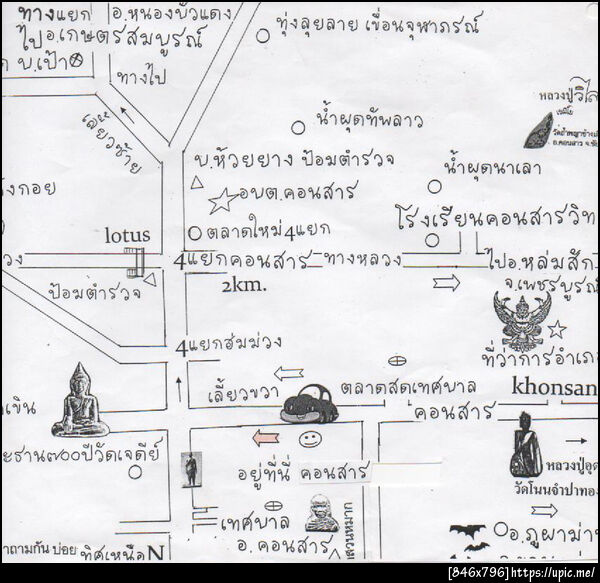 ทางแยก อ.หนองบัวแดง
ไปอ.เกษตรสมบูรณ์
บ.เป้า
ทางไป
ทุ่งลุยลาย เขื่อนจุฬาภรณ์
เลี้ยวซ้าย
น้ำผุดทัพลาว
หลวงปู่
บ.ห้วยยาง ป้อมตำรวจ
น้ำผุดนาเลา
อบต.คอนสาร
โรงเรียนคอนสารวิท
lotus
ตลาดใหม่4แยก
4แยกคอนสาร ทางหลวง
ไปอ.หล่มสัก
จ.เพชรบูรณ์
2km.
ป้อมตำรวจ
4แยกฮมม่วง
ที่ว่าการอำเภอ
เลี้ยวขวา
ตลาดสดเทศบาล
คอนสาร
khonsan
อยู่ที่นี่ คอนสาร
วัดเจดีย์
วัดโนนจำปาทอง
เทศบาล
อ. คอนสาร
สวนหมาก
อ.ภูผาม่าน
ทิศเหนือN
[846x796]https://upic.me/